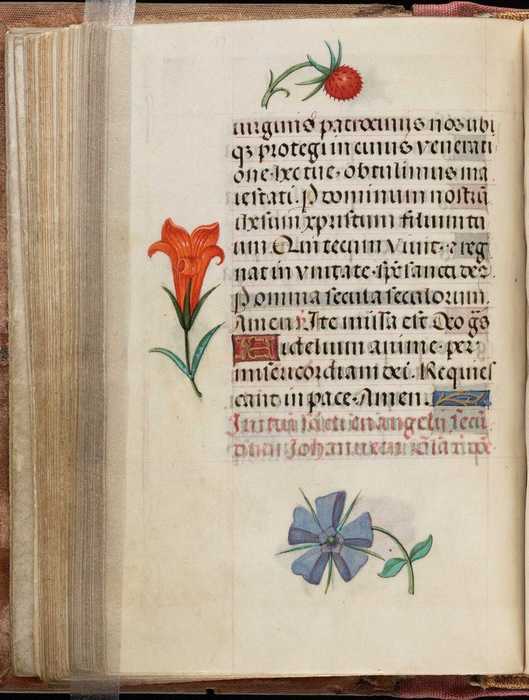 uirginis patrocinijs nos ubi
qz protegi in cuius venerati
one hec tue, obtulimus ma
iestati. P dominum nostrū
ihesum xpristum filium tu
um Qui tecum viuit. et reg
nat in vnitate. sp̄s sancti de9
P omnia secula seculorum.
Amen Ite missa est Deo gs̄
Fidelium anime. per
misericordiam dei. Requies
cant in pace. Amen.
Initiū sācti euangelij secū
dum Johannem